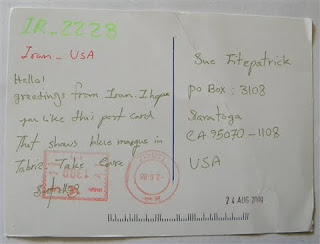 IR_2228
Iran_USA
Hello!
greetings from Iran. I hope
you like this post card
That shows blue mosque in
Tabriz. Take Care
Sue Fitzpatrick
po Box: 3108
Saratoga
CA 95070-1108
USA
1300
24 AUG